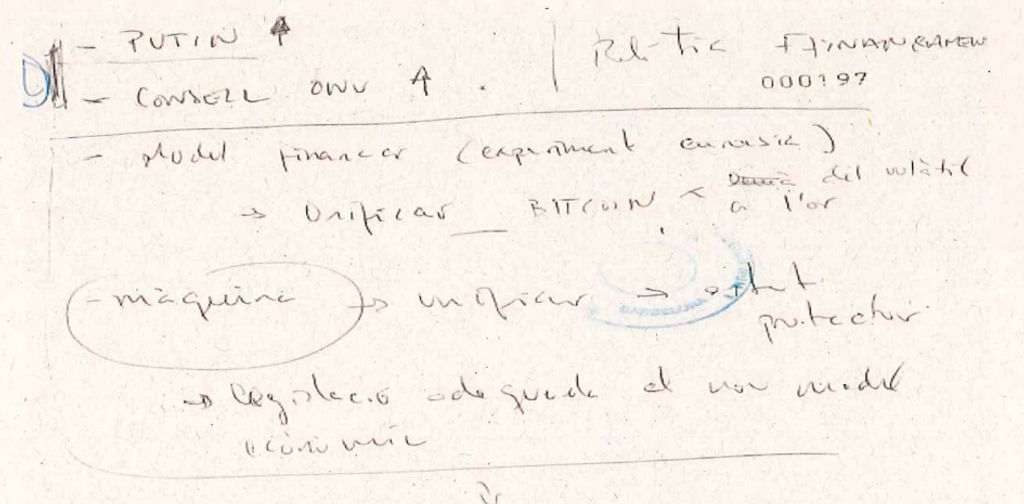 - PUTIN ↑
- CONSELL ONU ↑ .
FINANÇAMEN
000197
- Model financer (experiment eurasia)
→ Unificar BITCOIN del volàtil
a l'or
- màquina → unificar → estat
protector
→ legislació adequada al nou model
econòmic